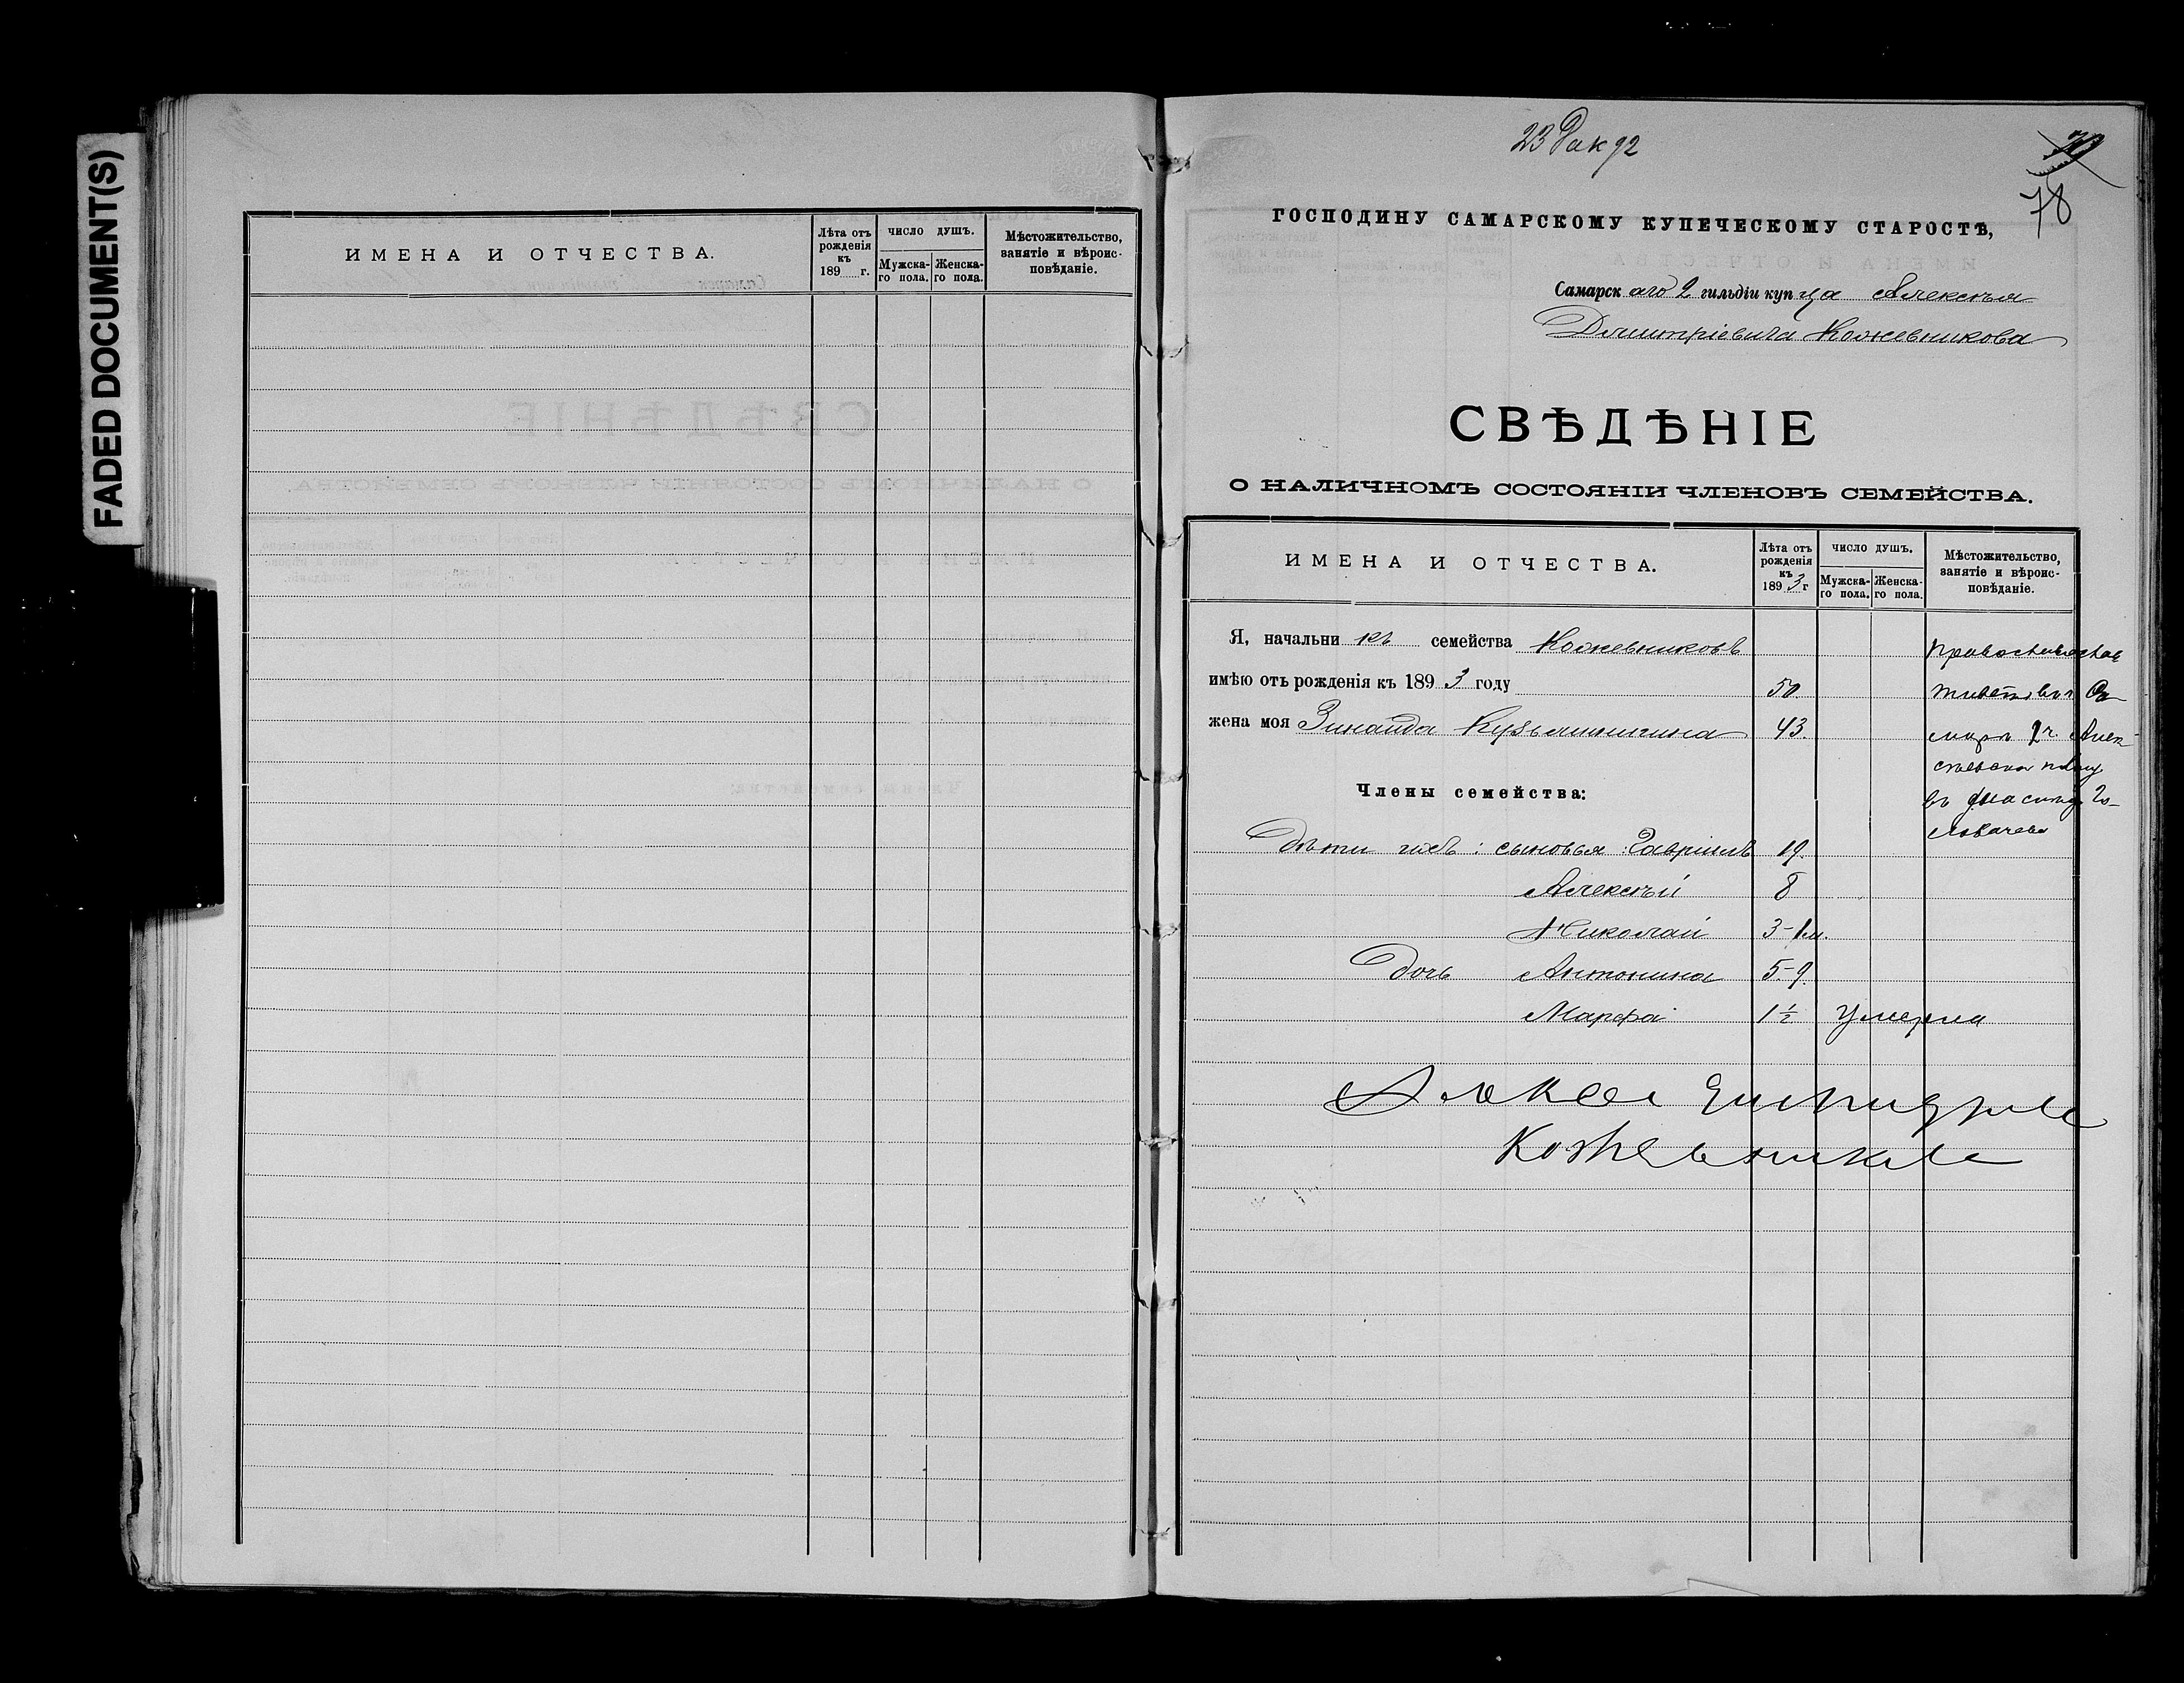 FADED DOCUMENT(S)
ИМЕНА И ОТЧЕСТВА.
Лѣта отъ рожденія къ 189 г.
ЧИСЛО ДУШЪ.
Мужска-го пола.
Женска-го пола.
Мѣстожительство, занятіе и вѣроис-повѣданіе.
23 Дек 92
70
78
ГОСПОДИНУ САМАРСКОМУ КУПЕЧЕСКОМУ СТАРОСТѢ,
Самарскаго 2 гильдіи купца Алексѣя
Димитріевича Кожевникова
СВѢДѢНІЕ
О НАЛИЧНОМЪ СОСТОЯНІИ ЧЛЕНОВЪ СЕМЕЙСТВА.
ИМЕНА И ОТЧЕСТВА.
Лѣта отъ рожденія къ 1893 г
ЧИСЛО ДУШЪ.
Мужска-го пола.
Женска-го пола.
Мѣстожительство, занятіе и вѣроис-повѣданіе.
Я, начальникъ семейства Кожевниковъ
имѣю отъ рожденія къ 1893 году 50
жена моя Зинаида Кузьминична 43.
Члены семейства:
Дѣти ихъ: сыновья: Гавріилъ 19.
Алексѣй 8
Николай 3-1м.
Дочь Антонина 5-9.
Марфа 1½ Умерла
Кожевников